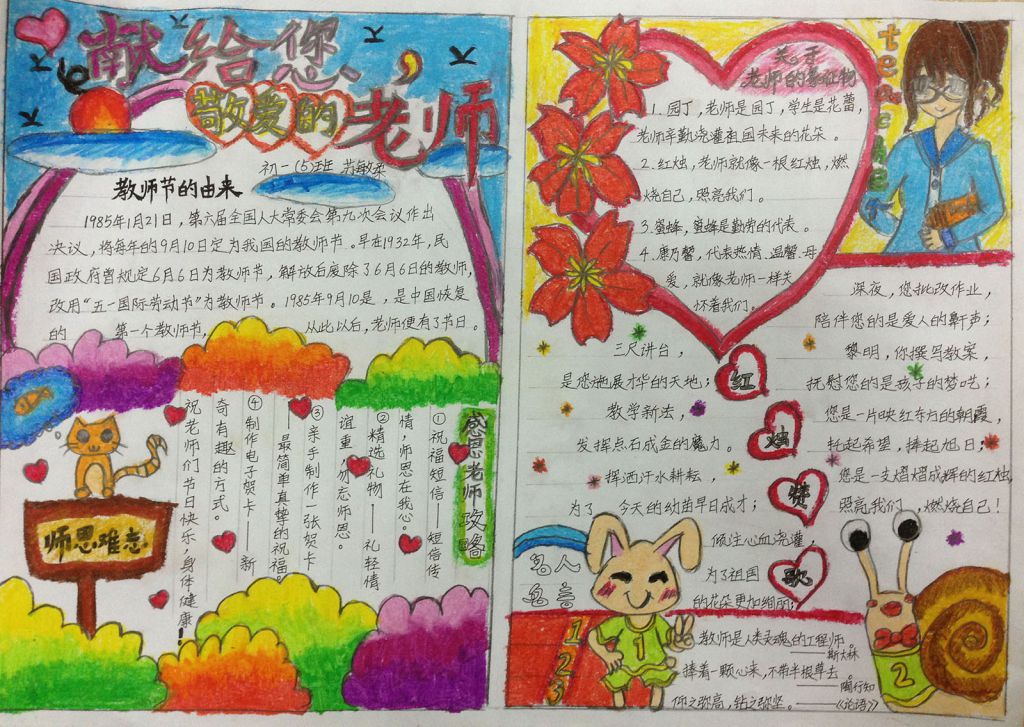 献给您,
敬爱的老师
初一(5)班 苏敏柔
教师节的由来
1985年1月21日,第六届全国人大常委会第九次会议作出
决议,将每年的9月10日定为我国的教师节。早在1932年,民
国政府曾规定6月6日为教师节,解放后废除了6月6日的教师,
改用“五一国际劳动节”为教师节。1985年9月10是,是中国恢复
的 第一个教师节, 从此以后,老师便有了节日。
感恩老师攻略
①祝福短信——短信传
情,师恩在我心。
②精选礼物——礼轻情
谊重,勿忘师恩。
③亲手制作一张贺卡
——最简单真挚的祝福。
④制作电子贺卡——新
奇有趣的方式。
祝老师们节日快乐,身体健康!
师恩难忘
关于
老师的象征物
1.园丁,老师是园丁,学生是花蕾,
老师辛勤浇灌祖国未来的花朵。
2.红烛,老师就像一根红烛,燃
烧自己,照亮我们。
3.蜜蜂,蜜蜂是勤劳的代表。
4.康乃馨,代表热情、温馨、母
爱,就像老师一样关
怀着我们。
teacher
红烛赞歌
三尺讲台,
是您施展才华的天地;
教学新法,
发挥点石成金的魔力。
挥洒汗水耕耘,
为了 今天的幼苗早日成才;
倾注心血浇灌,
为了祖国
的花朵更加绚丽;
深夜,您批改作业,
陪伴您的是爱人的鼾声;
黎明,你撰写教案,
抚慰您的是孩子的梦呓;
您是一片映红东方的朝霞,
托起希望,捧起旭日;
您是一支熠熠成辉的红烛,
照亮我们,燃烧自己!
名人
名言
1
2
3
1
2
教师是人类灵魂的工程师。
——斯大林
捧着一颗心来,不带半根草去。
——陶行知
仰之弥高,钻之弥坚。——《论语》